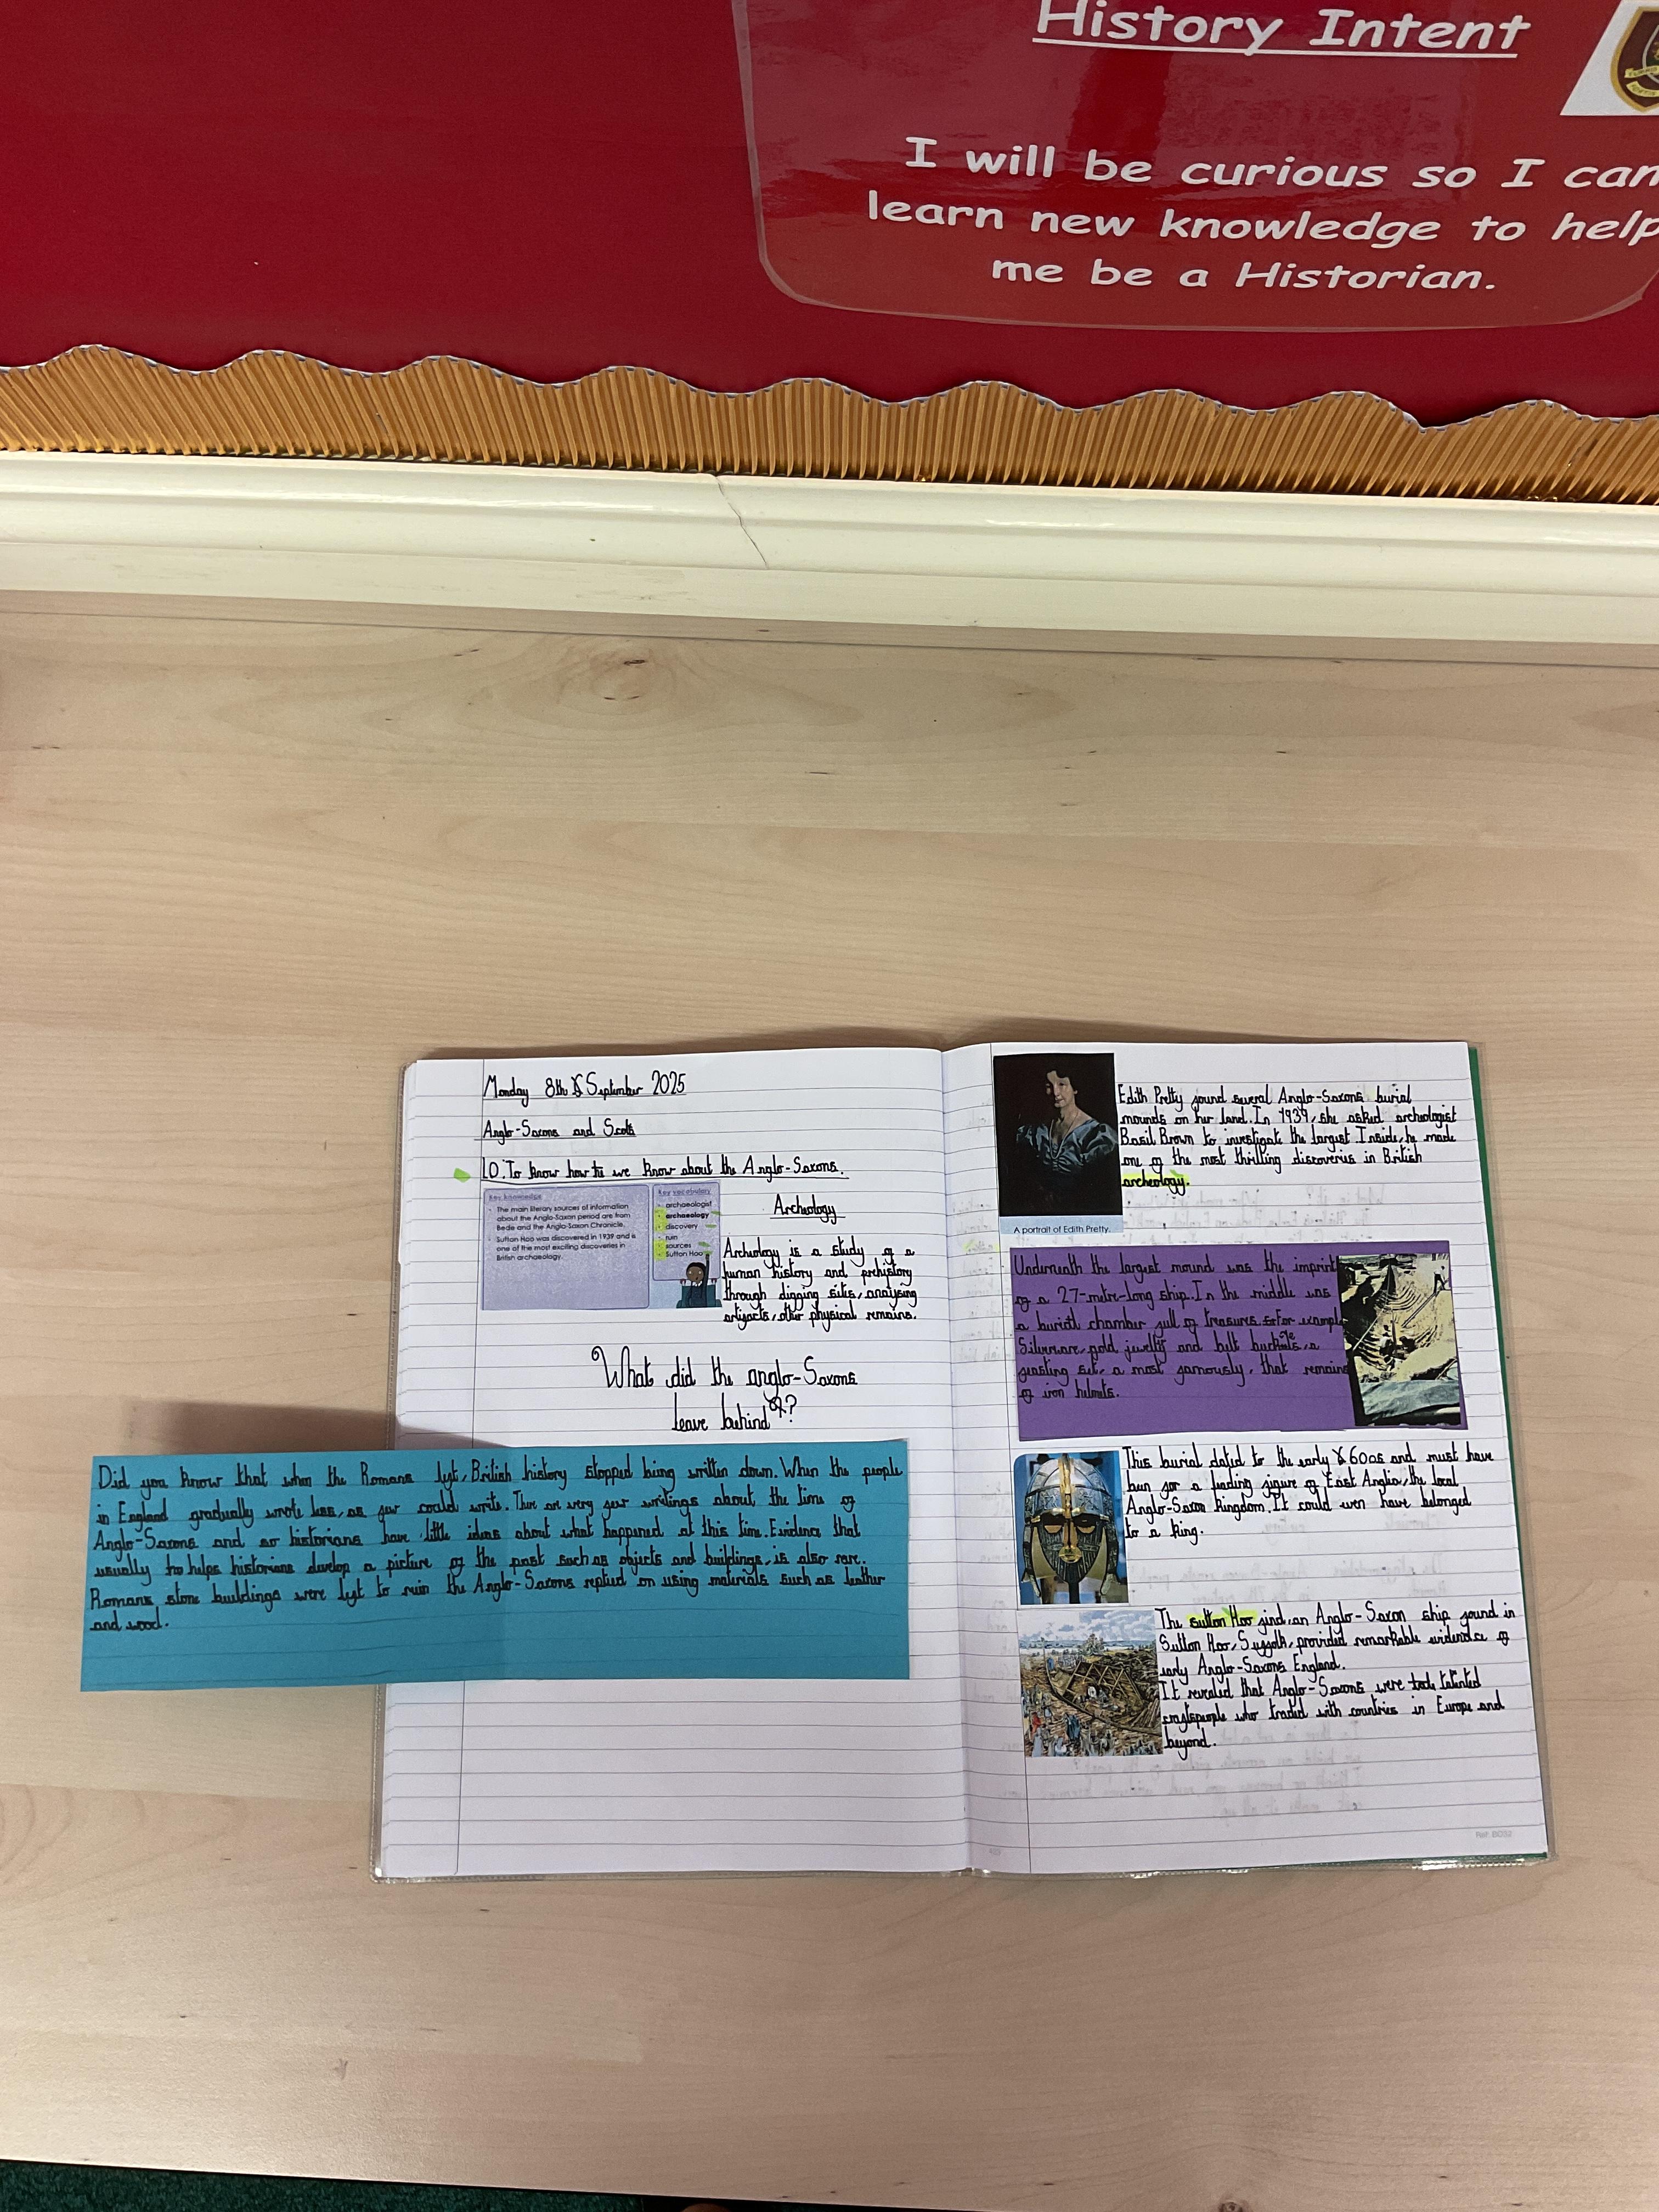 History Intent
I will be curious so I can
learn new knowledge to help
me be a Historian.
Monday 8th September 2025
Anglo-Saxons and Scots
LO: To know how we know about the Anglo-Saxons.
Key knowledge
The main literary sources of information
about the Anglo-Saxon period are from
Bede and the Anglo-Saxon Chronicle.
Sutton Hoo was discovered in 1939 and is
one of the most exciting discoveries in
British archaeology.
Key vocabulary
archaeologist
archaeology
discovery
ruin
sources
Sutton Hoo
Archeology
Archeology is a study of a
human history and prehistory
through digging sites, analysing
artifacts, other physical remains.
What did the anglo-Saxons
leave behind?
Did you know that when the Romans left, British history stopped being written down. When the people
in England gradually wrote less, as few could write. There are very few writings about the time of
Anglo-Saxons and so historians have little ideas about what happened at this time. Evidence that
usually helps historians develop a picture of the past such as objects and buildings, is also rare.
Romans stone buildings were left to ruin the Anglo-Saxons replied on using materials such as leather
and wood.
Edith Pretty found several Anglo-Saxons burial
mounds on her land. In 1939, she asked archeologist
Basil Brown to investigate the largest Inside, he made
one of the most thrilling discoveries in British
archeology.
A portrait of Edith Pretty.
Underneath the largest mound was the imprint
of a 27-metre-long ship. In the middle was
a burial chamber full of treasures. For example
Silverware, gold and belt buckle, a
feasting set, a most famously, that remains
of iron helmets.
This burial dated to the early 600s and must have
been for a leading figure of East Anglia, the local
Anglo-Saxon kingdom. It could even have belonged
to a king.
The sutton Hoo find, an Anglo-Saxon ship found in
Sutton Hoo, Suffolk, provided remarkable evidence of
early Anglo-Saxons England.
It revealed that Anglo-Saxons were talented
craftspeople who traded with countries in Europe and
beyond.